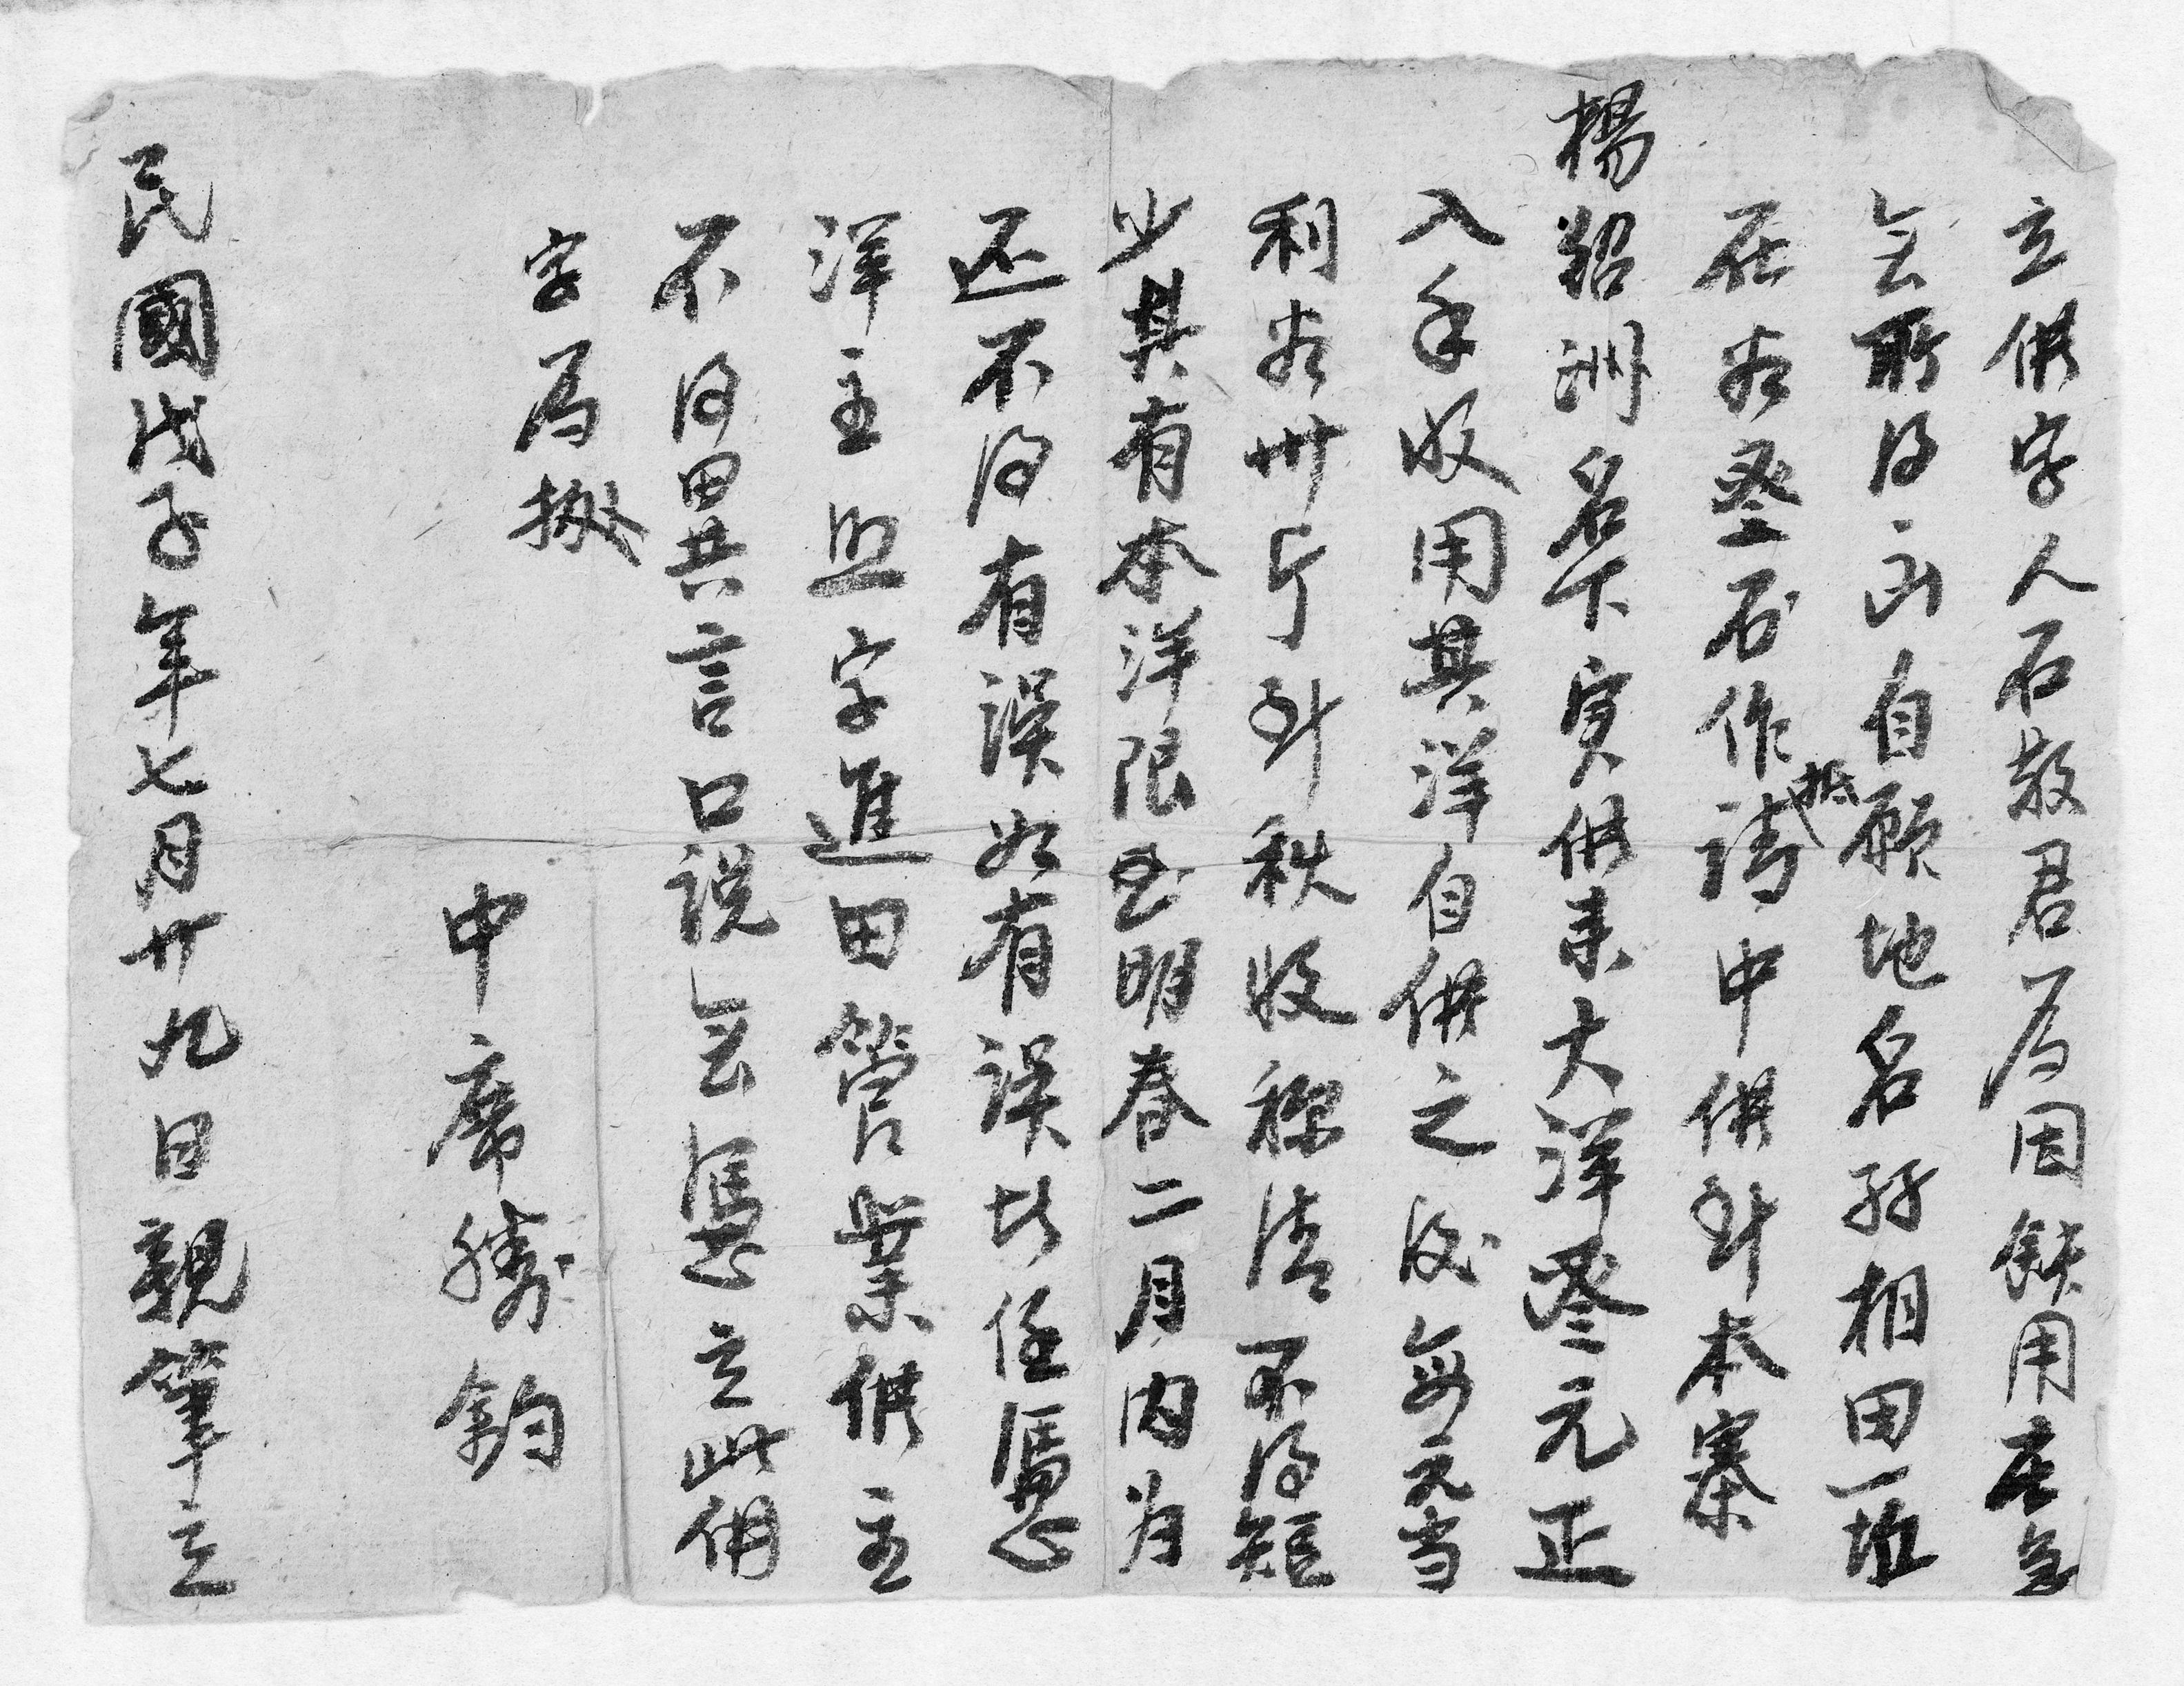 立借字人石敖君為因缺用在急
無所得出自願地名孖相田一坵
在谷叁石作抵請中借到本寨
楊韶洲名下实借末大洋叁元正
入手收用其洋自借之後每元当
利谷卅斤到秋收称清不得短
少其有本洋限至明春二月内为
还不得有误如有误者任憑
洋主照字進田管業借主
不得異言口説無憑立此借
字爲㨿
中席勝鈞
民國戊子年七月廿九日親筆立